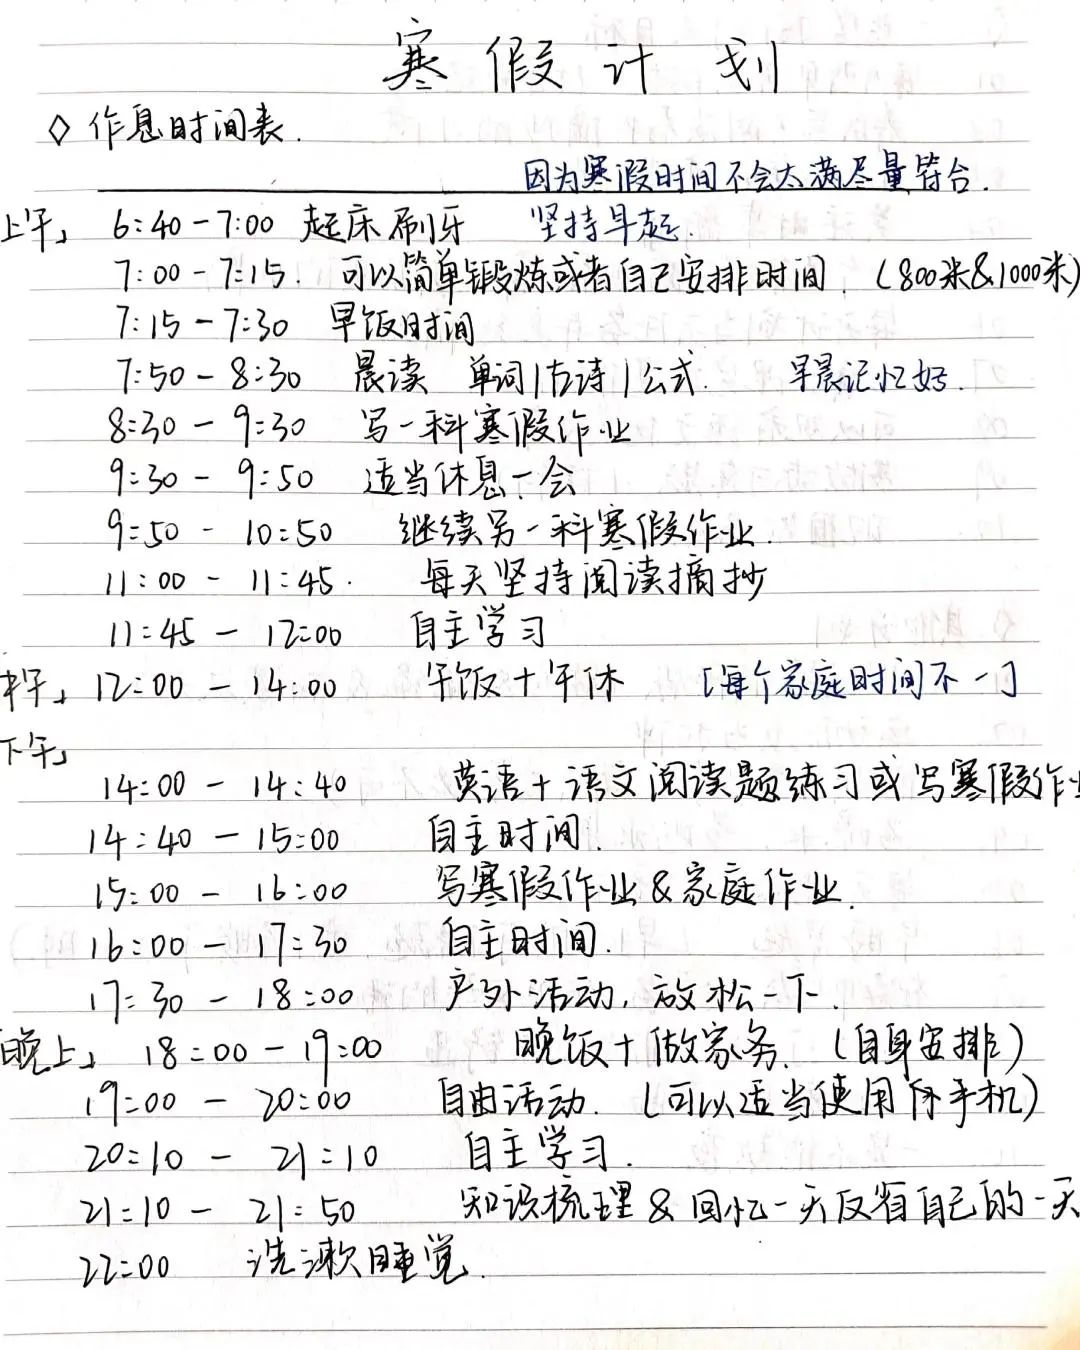 寒假计划
◇ 作息时间表.
因为寒假时间不会太满尽量符合.
上午」 6:40-7:00 起床刷牙 坚持早起.
7:00-7:15. 可以简单锻炼或者自己安排时间. (800米&1000米)
7:15-7:30 早饭时间
7:50-8:30 晨读 单词|古诗|公式. 早晨记忆好.
8:30-9:30 写一科寒假作业
9:30-9:50 适当休息一会
9:50-10:50 继续另一科寒假作业.
11:00-11:45. 每天坚持阅读摘抄
11:45-12:00 自主学习
中午」 12:00-14:00 午饭+午休 「每个家庭时间不一」
下午」
14:00-14:40 英语+语文阅读题练习或写寒假作业
14:40-15:00 自主时间.
15:00-16:00 写寒假作业&家庭作业.
16:00-17:30 自主时间.
17:30-18:00 户外活动,放松一下.
晚上」 18:00-19:00 晚饭+做家务.(自身安排)
19:00-20:00 自由活动.(可以适当使用手机)
20:10-21:10 自主学习.
21:10-21:50 知识梳理&回忆一天反省自己的一天
22:00 洗漱睡觉.